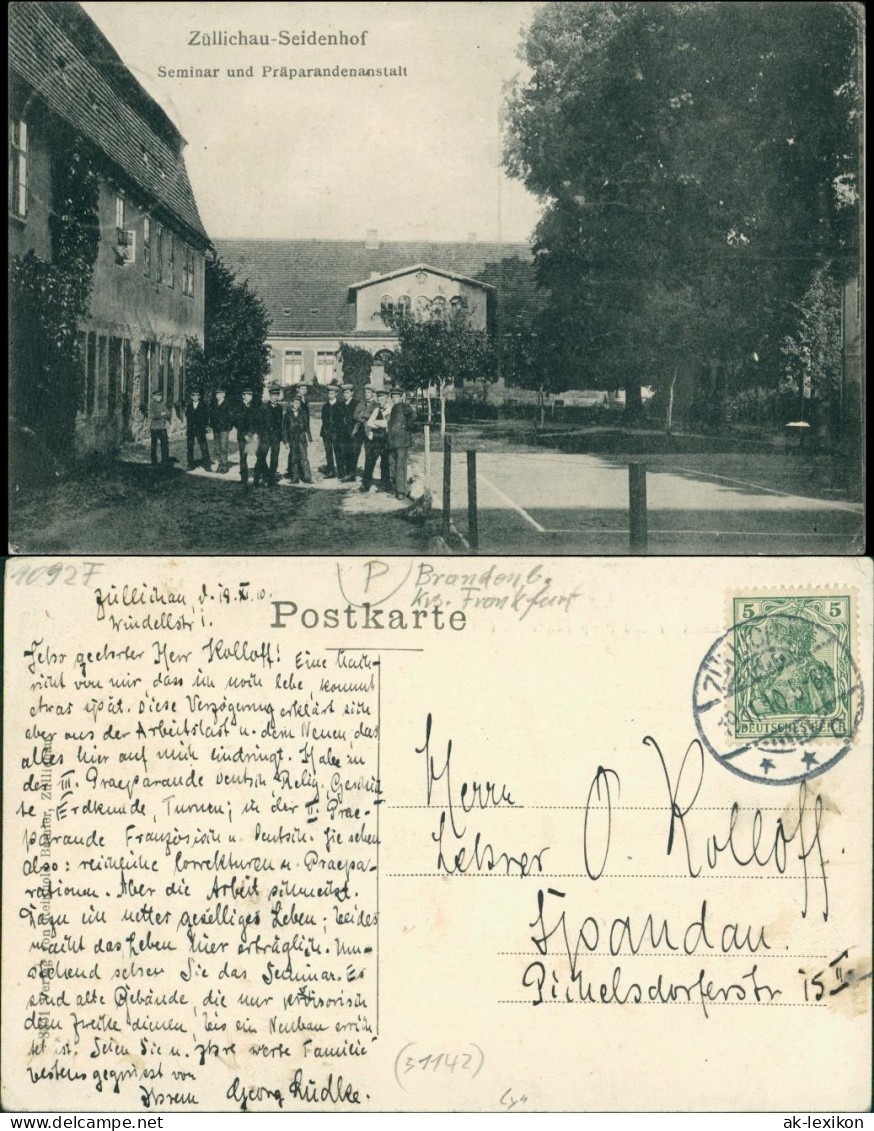 Züllichau-Seidenhof
Seminar und Präparandenanstalt
1092F
P
Brandenb.
Krs. Frankfurt
Züllichau, d. 19. XI. 10.
Windellstr 1.
Postkarte
Sehr geehrter Herr Kolloff! Eine Nach-
richt von mir, dass ich noch lebe, kommt
etwas spät. Diese Verzögerung erklärt sich
aber aus der Arbeitslast u. dem Neuen, das
alles hier auf mich eindringt. Habe in
der III. Praeparande Deutsch, Relig. Geschich-
te, Erdkunde, Turnen; in der II. Prae-
parande Französisch u. Deutsch. Sie sehen
also: reichliche Correkturen u. Praepa-
rationen. Aber die Arbeit schmeckt.
Dazu ein nettes geselliges Leben; beides
macht das Leben hier erträglich. Um-
stehend sehen Sie das Seminar. Es
sind alte Gebäude, die nur provisorisch
dem Zwecke dienen, bis ein Neubau errich-
tet ist. Seien Sie u. Ihre werte Familie
bestens gegrüsst von
Ihrem Georg Lüdke.
5 5
DEUTSCHES REICH
ZÜLLICHAU
19.11.10
Herrn
Lehrer O. Kolloff.
Spandau.
Pichelsdorferstr 15 II
(31142)
ak-lexikon